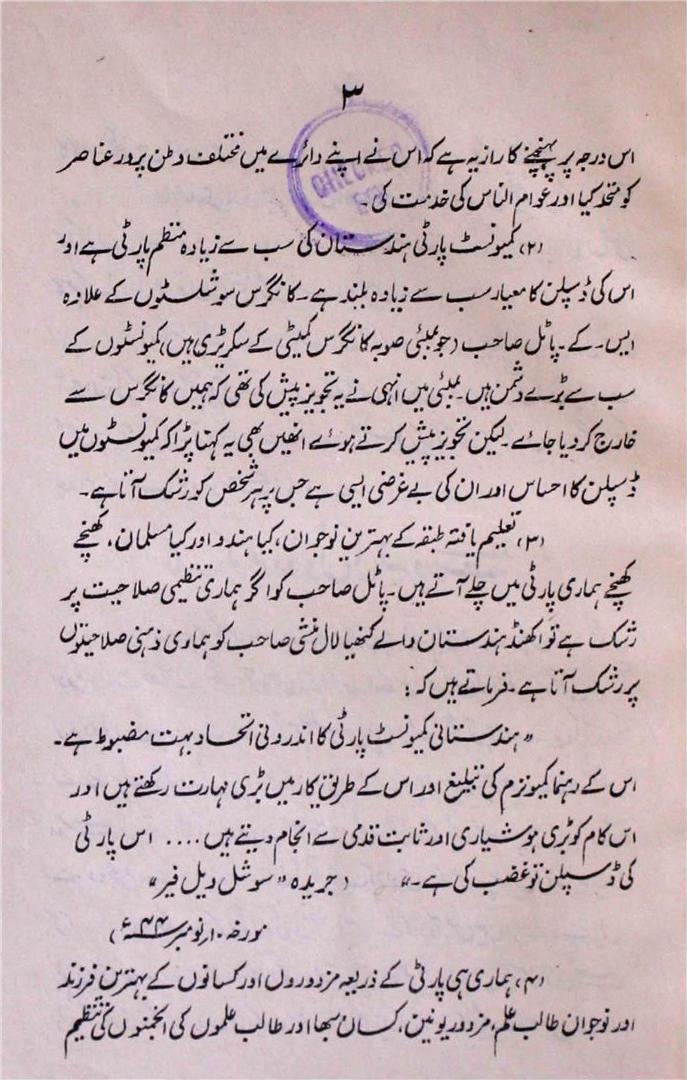 ۳
اس درجہ پر پہنچنے کا راز یہ ہے کہ اس نے اپنے دائرے میں مختلف وطن پرور عناصر
کو متحد کیا اور عوام الناس کی خدمت کی۔
(۲) کمیونسٹ پارٹی ہندستان کی سب سے زیادہ منظم پارٹی ہے اور
اس کی ڈسپلن کا معیار سب سے زیادہ بلند ہے۔ کانگرس سوشلسٹوں کے علاوہ
ایس۔ کے۔ پاٹل صاحب (جو بمبئی صوبہ کانگرس کمیٹی کے سکریٹری ہیں) کمیونسٹوں کے
سب سے بڑے دشمن ہیں۔ بمبئی میں انہی نے یہ تجویز پیش کی تھی کہ ہمیں کانگرس سے
خارج کر دیا جائے۔ لیکن تجویز پیش کرتے ہوئے انھیں بھی یہ کہنا پڑا کہ کمیونسٹوں میں
ڈسپلن کا احساس اور ان کی بے غرضی ایسی ہے جس پر ہر شخص کو رشک آتا ہے۔
(۳) تعلیم یافتہ طبقہ کے بہترین نوجوان، کیا ہندو اور کیا مسلمان، کھنچے
کھنچے ہماری پارٹی میں چلے آتے ہیں۔ پاٹل صاحب کو اگر ہماری تنظیمی صلاحیت پر
رشک ہے تو اکھنڈ ہندستان والے کنھیا لال منشی صاحب کو ہماری ذہنی صلاحیتوں
پر رشک آتا ہے۔ فرماتے ہیں کہ:
"ہندستانی کمیونسٹ پارٹی کا اندرونی اتحاد بہت مضبوط ہے۔
اس کے رہنما کمیونزم کی تبلیغ اور اس کے طریق کار میں بڑی مہارت رکھتے ہیں اور
اس کام کو بڑی ہوشیاری اور ثابت قدمی سے انجام دیتے ہیں .... اس پارٹی
کی ڈسپلن تو غضب کی ہے۔" (جریدہ "سوشل ویل فیر"
مورخہ ۱۰ نومبر ۴۴ء)
(۴) ہماری ہی پارٹی کے ذریعہ مزدوروں اور کسانوں کے بہترین فرزند
اور نوجوان طالب علم، مزدور یونین، کسان سبھا اور طالب علموں کی انجمنوں کی تنظیم